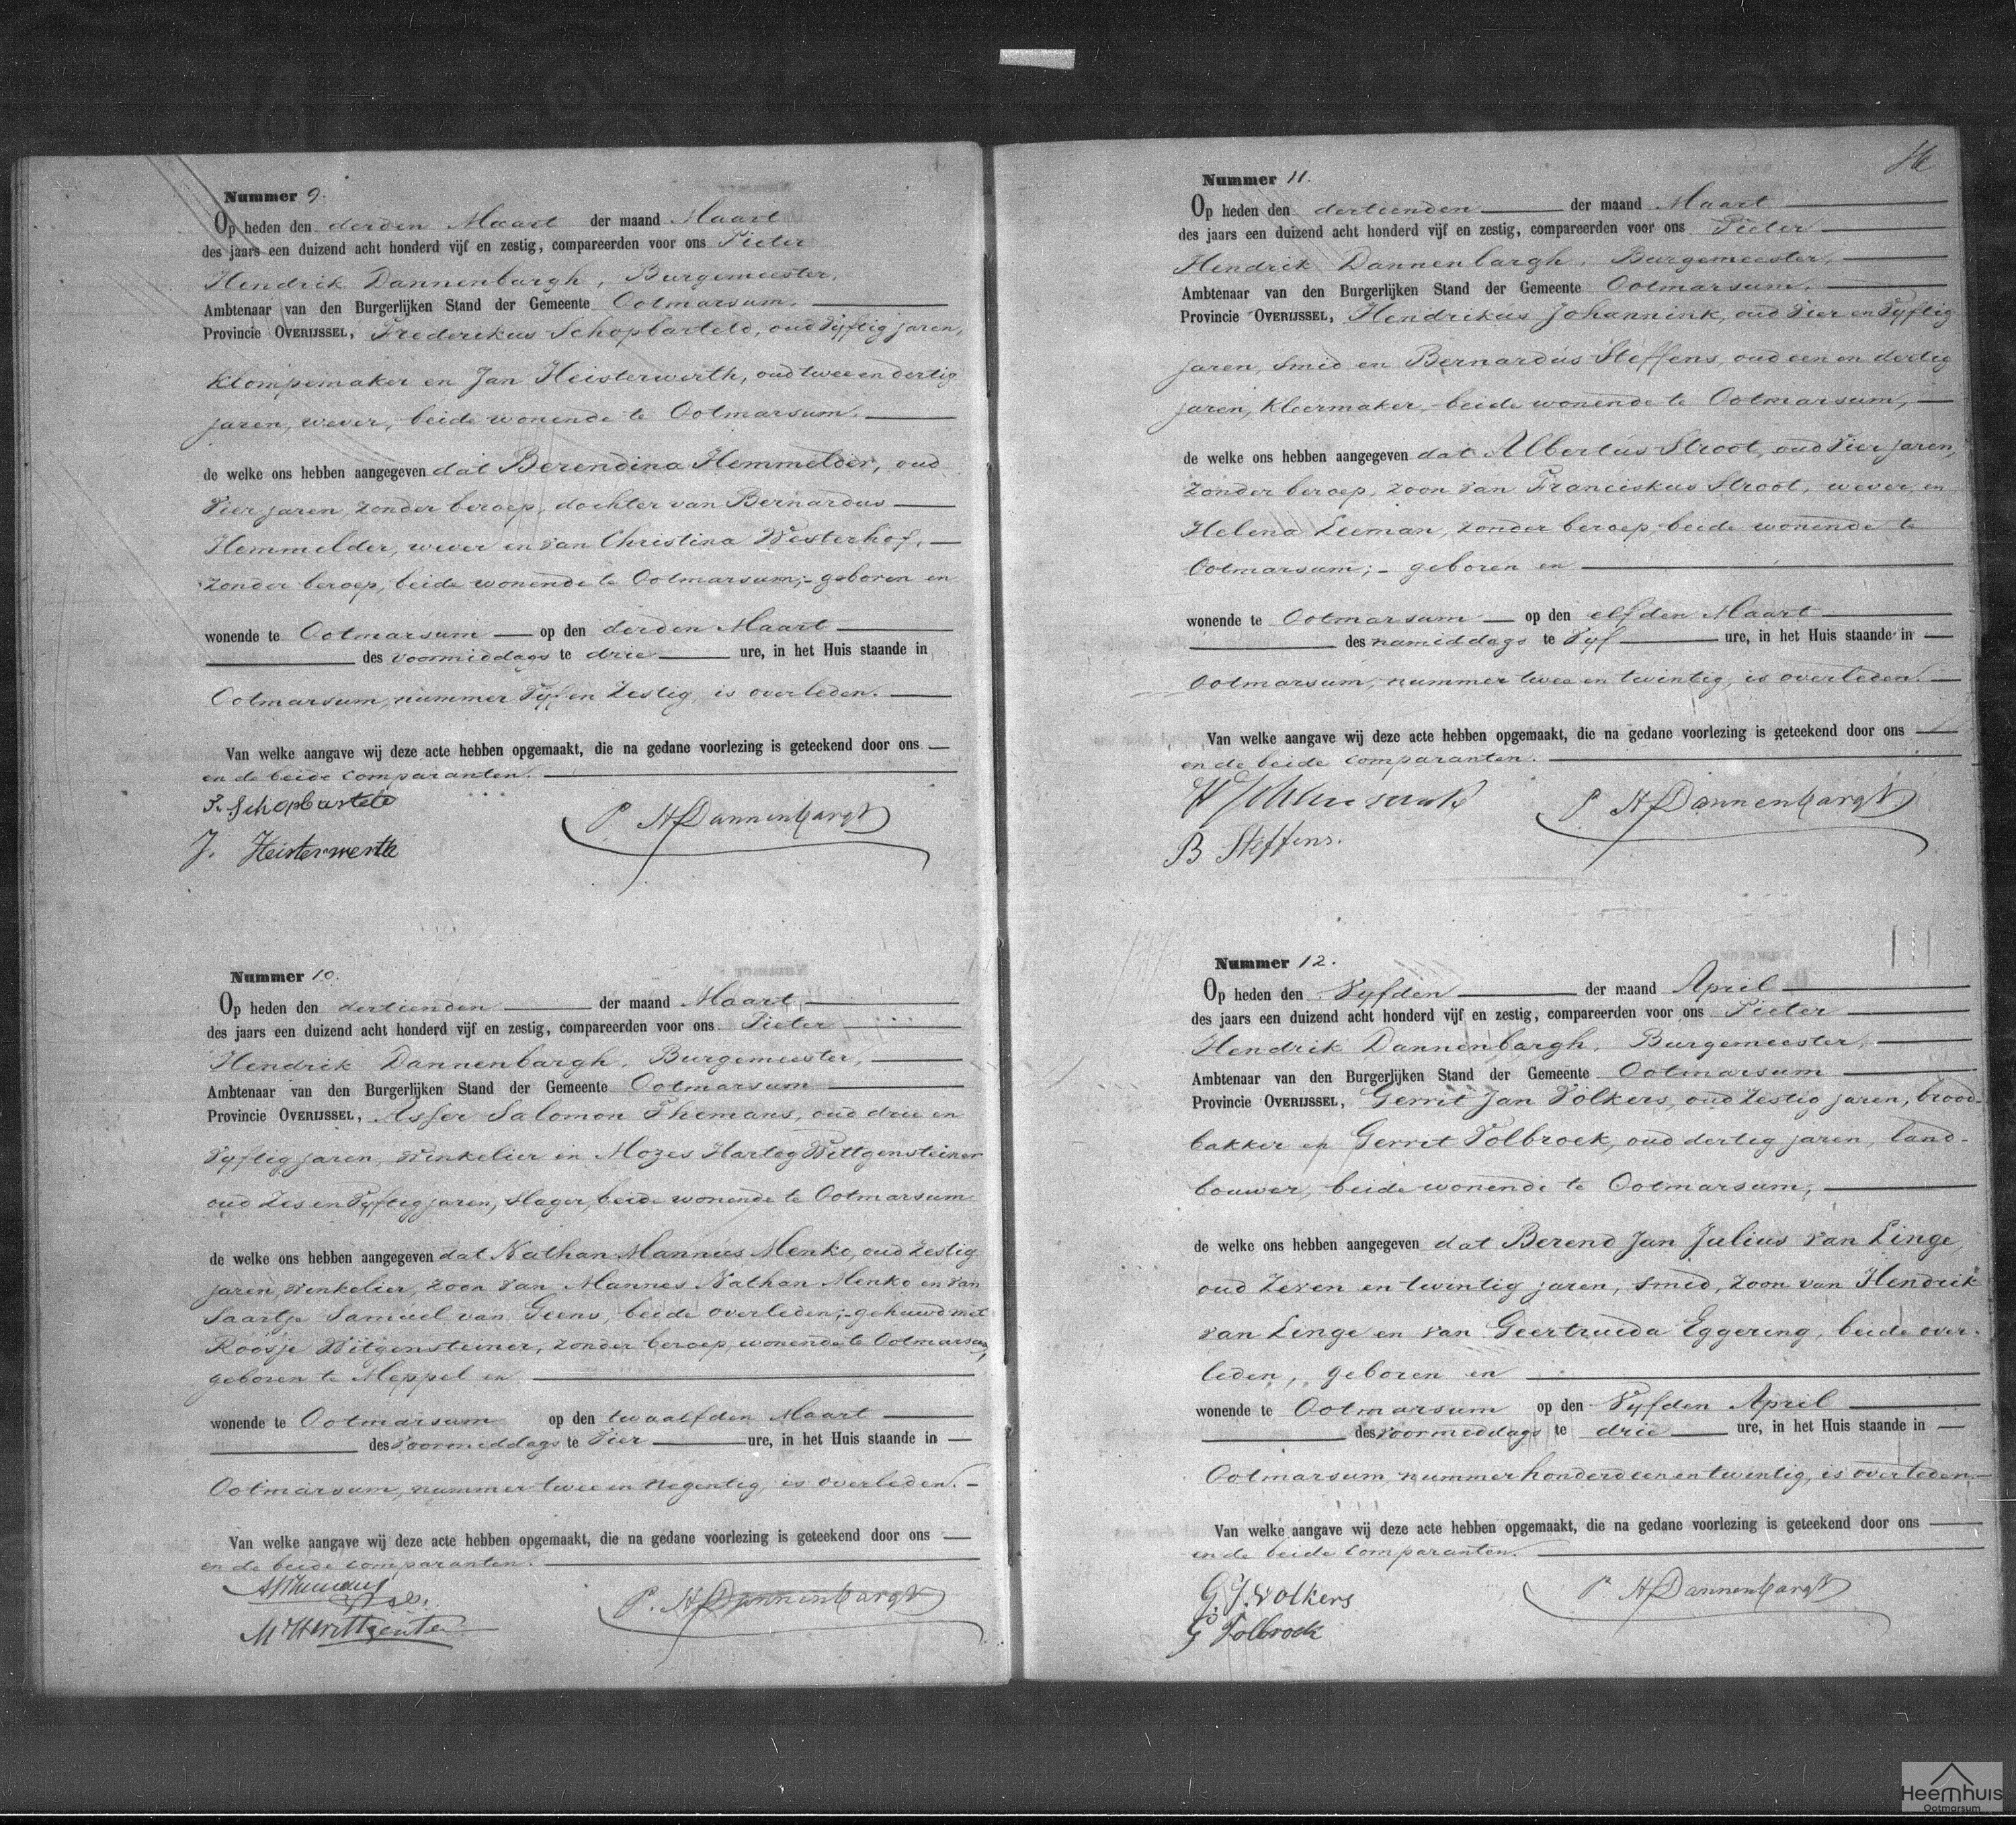 Nummer 9.
Op heden den derden Maart der maand Maart
des jaars een duizend acht honderd vijf en zestig, compareerden voor ons Pieter
Hendrik Dannenbargh, Burgemeester,
Ambtenaar van den Burgerlijken Stand der Gemeente Ootmarsum.
Provincie OVERIJSSEL, Frederikus Schopbarteld, oud Vyftig jaren,
Klompemaker en Jan Heisterwerth, oud twee en dertig
jaren, wever, beide wonende te Ootmarsum.
de welke ons hebben aangegeven dat Berendina Hemmelder, oud
Vier jaren, zonder beroep, dochter van Bernardus
Hemmelder, wever en van Christina Westerhof,
zonder beroep, beide wonende te Ootmarsum; geboren en
wonende te Ootmarsum op den derden Maart
des voormiddags te drie ure, in het Huis staande in
Ootmarsum, nummer Vyf en Zestig, is overleden.
Van welke aangave wij deze acte hebben opgemaakt, die na gedane voorlezing is geteekend door ons
en de beide comparanten.
F. Schopbarteld
P. H Dannenbargh
J. Heisterwerth
Nummer 10.
Op heden den dertienden der maand Maart,
des jaars een duizend acht honderd vijf en zestig, compareerden voor ons Pieter
Hendrik Dannenbargh, Burgemeester,
Ambtenaar van den Burgerlijken Stand der Gemeente Ootmarsum
Provincie OVERIJSSEL, Asser Salomon Themans, oud drie en
Vyftig jaren, Winkelier en Mozes Harteg Wittgensteiner
oud Zes en Vyftig jaren, Slager, beide wonende te Ootmarsum
de welke ons hebben aangegeven dat Nathan Mannus Menko, oud Zestig
jaren, Winkelier, zoon van Mannes Nathan Menko en van
Saartje Samuel van Geens, beide overleden; gehuwd met
Roosje Witgensteiner, zonder beroep, wonende te Ootmarsum,
geboren te Meppel en
wonende te Ootmarsum op den twaalfden Maart
des Voormiddags te Vier ure, in het Huis staande in
Ootmarsum, nummer twee en Negentig, is overleden.
Van welke aangave wij deze acte hebben opgemaakt, die na gedane voorlezing is geteekend door ons
en de beide comparanten.
P. H Dannenbargh
Nummer 11.
Op heden den dertienden der maand Maart
des jaars een duizend acht honderd vijf en zestig, compareerden voor ons Pieter
Hendrik Dannenbargh, Burgemeester,
Ambtenaar van den Burgerlijken Stand der Gemeente Ootmarsum,
Provincie OVERIJSSEL, Hendrikus Johannink, oud Vier en Vyftig
jaren, Smid en Bernardus Steffens, oud een en dertig
jaren, Kleermaker, beide wonende te Ootmarsum,
de welke ons hebben aangegeven dat Albertus Stroot, oud Vier jaren,
zonder beroep, zoon van Franciskus Stroot, wever en
Helena Leeman, zonder beroep, beide wonende te
Ootmarsum; geboren en
wonende te Ootmarsum op den elfden Maart
des namiddags te Vyf ure, in het Huis staande in
Ootmarsum, nummer twee en twintig, is overleden.
Van welke aangave wij deze acte hebben opgemaakt, die na gedane voorlezing is geteekend door ons
en de beide comparanten.
P H Dannenbargh
B Steffens.
Nummer 12.
Op heden den Vyfden der maand April
des jaars een duizend acht honderd vijf en zestig, compareerden voor ons Pieter
Hendrik Dannenbargh, Burgemeester,
Ambtenaar van den Burgerlijken Stand der Gemeente Ootmarsum
Provincie OVERIJSSEL, Gerrit Jan Volkers, oud Zestig jaren, brood-
bakker en Gerrit Volbroek, oud dertig jaren, land-
bouwer, beide wonende te Ootmarsum,
de welke ons hebben aangegeven dat Berend Jan Julius van Linge,
oud Zeven en twintig jaren, Smid, zoon van Hendrik
van Linge en van Geertruida Eggering, beide over-
leden, geboren en
wonende te Ootmarsum op den Vyfden April
des voormiddags te drie ure, in het Huis staande in
Ootmarsum, nummer honderd een en twintig, is overleden.
Van welke aangave wij deze acte hebben opgemaakt, die na gedane voorlezing is geteekend door ons
en de beide comparanten.
G. J. Volkers
P H Dannenbargh
G Volbroek
Heemhuis
Ootmarsum